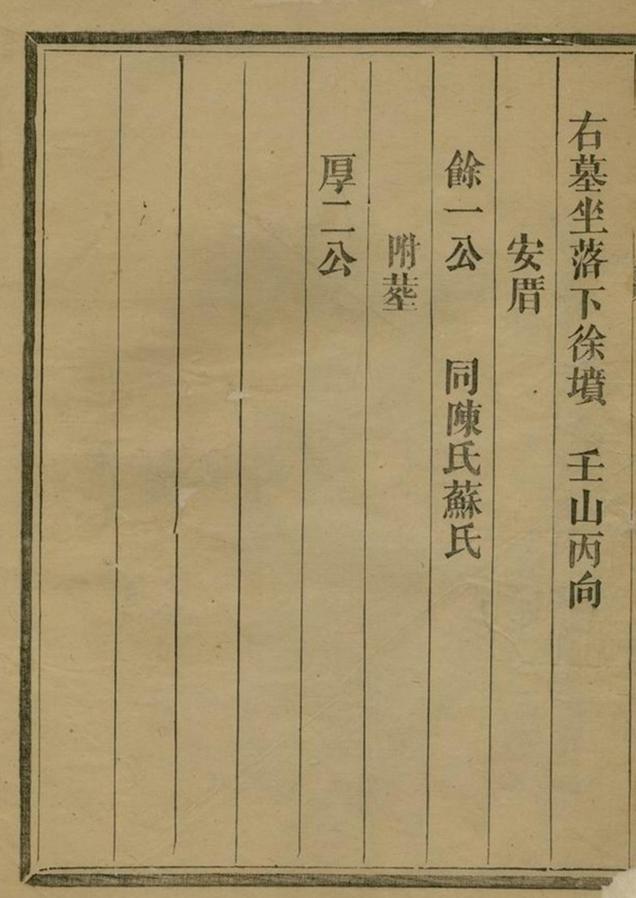 右墓坐落下徐墳　壬山丙向
安厝
餘一公　同陳氏蘇氏
附塟
厚二公